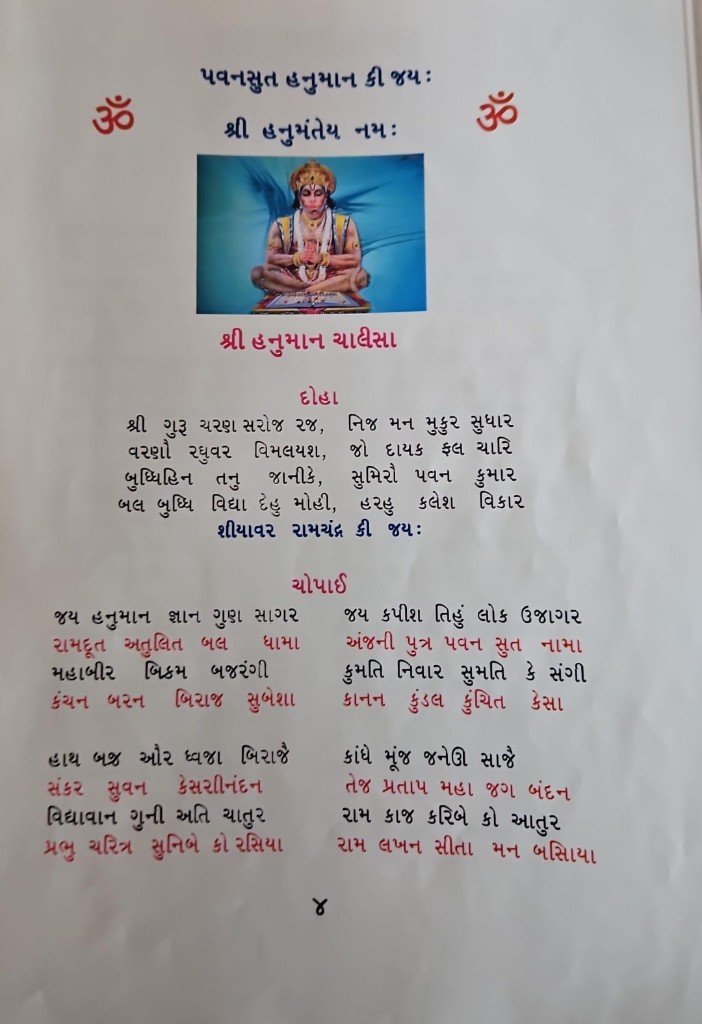 પવનસુત હનુમાન કી જયઃ
ૐ ૐ
શ્રી હનુમંતેય નમઃ
શ્રી હનુમાન ચાલીસા
દોહા
શ્રી ગુરૂ ચરણ સરોજ રજ, નિજ મન મુકુર સુધાર
વરણૌ રઘુવર વિમલયશ, જો દાયક ફલ ચારિ
બુધ્ધિહિન તનુ જાનીકે, સુમિરૌ પવન કુમાર
બલ બુધ્ધિ વિદ્યા દેહુ મોહી, હરહુ કલેશ વિકાર
શીયાવર રામચંદ્ર કી જયઃ
ચોપાઈ
જય હનુમાન જ્ઞાન ગુણ સાગર જય કપીશ તિહું લોક ઉજાગર
રામદૂત અતુલિત બલ ધામા અંજની પુત્ર પવન સુત નામા
મહાબીર બિક્રમ બજરંગી કુમતિ નિવાર સુમતિ કે સંગી
કંચન બરન બિરાજ સુબેશા કાનન કુંડલ કુંચિત કેસા
હાથ બજ્ર ઔર ધ્વજા બિરાજૈ કાંધે મૂંજ જનેઊ સાજૈ
સંકર સુવન કેસરાીનંદન તેજ પ્રતાપ મહા જગ બંદન
વિદ્યાવાન ગુની અતિ ચાતુર રામ કાજ કરિબે કો આતુર
પ્રભુ ચરિત્ર સુનિબે કો રસિયા રામ લખન સીતા મન બસિાયા
૪